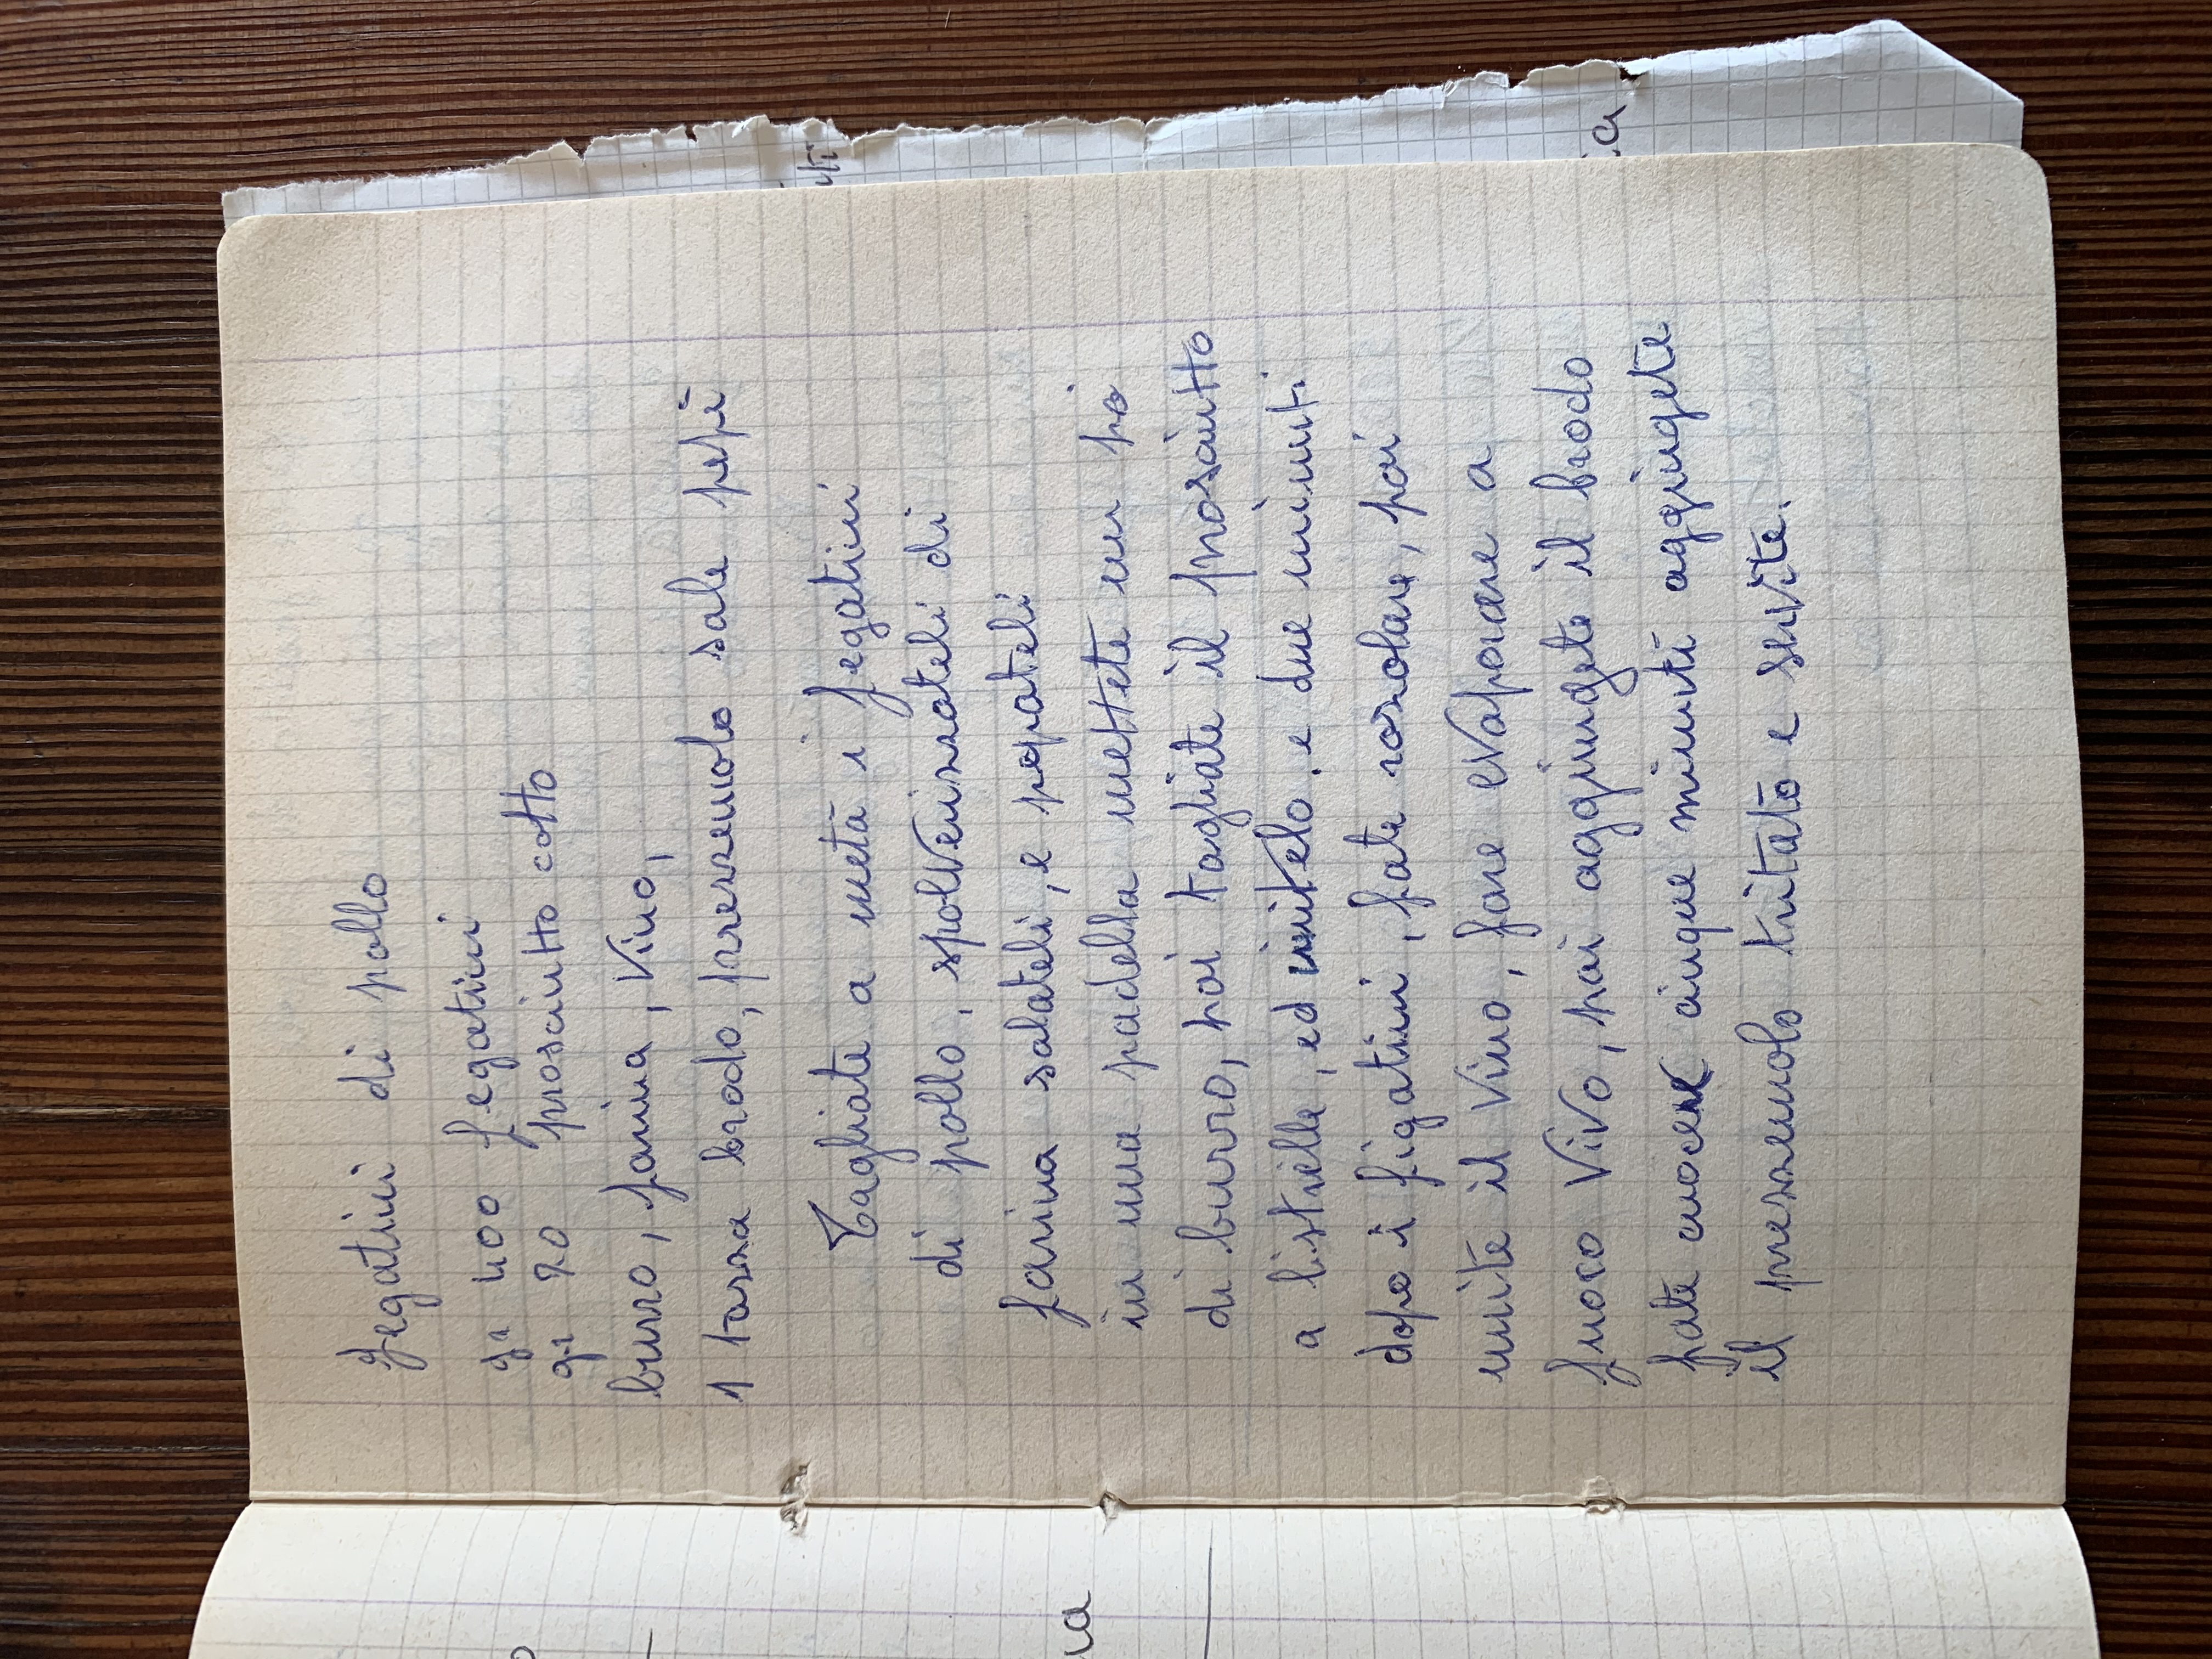 Fegatini di pollo
gr 400 fegatini
gr 70 prosciutto cotto
burro, farina, vino,
1 tazza brodo, prezzemolo sale pepe
Tagliate a metà i fegatini
di pollo, spolverizzateli di
farina salateli, e pepateli
in una padella mettete un pò
di burro, poi tagliate il prosciutto
a listrelle, ed unitelo. e due minuti
dopo i figatini, fate rosolare, poi
unite il vino, fare evaporare a
fuoco vivo, poi aggiungete il brodo
fate cuocere cinque minuti aggiungete
il prezzemolo tritato e servite.